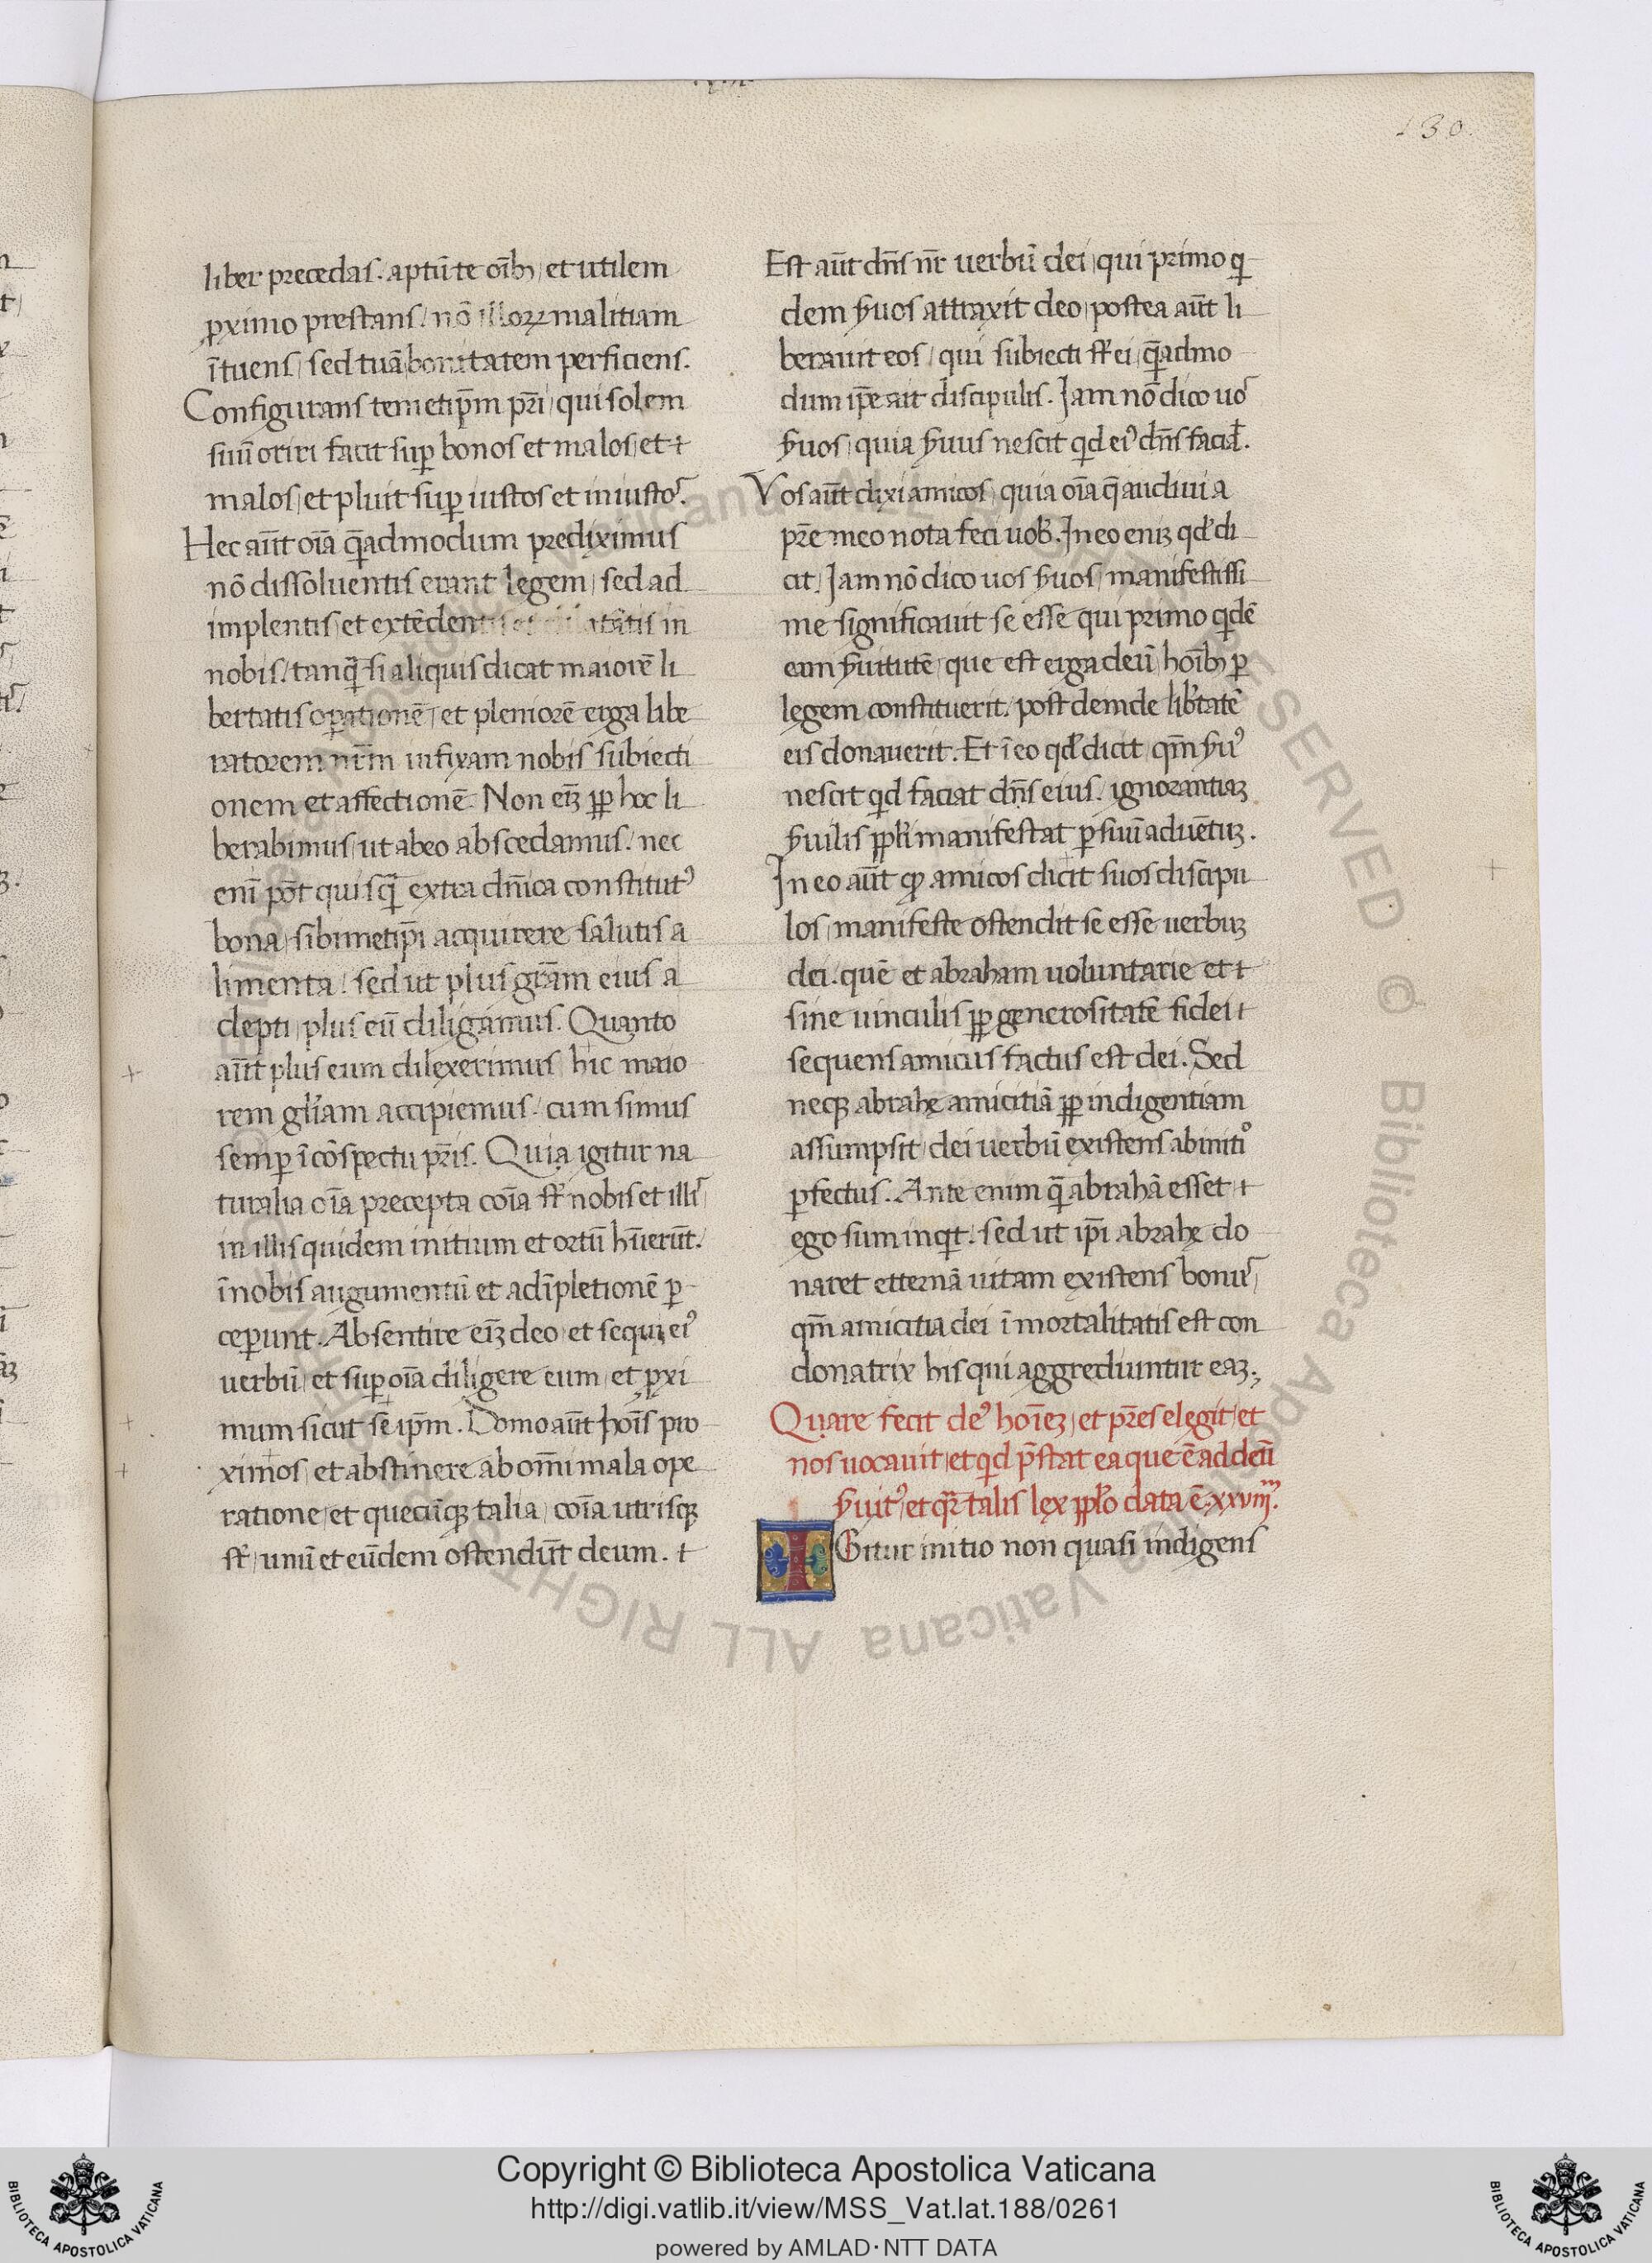 130.
liber precedas. aptū te oīb; et utilem
ꝓximo prestans. nō illoꝝ malitiam
ītuens, sed tuā bonitatem perficiens.
Configurans temetip̄m pr̄i, qui solem
suū oriri facit suꝑ bonos et malos, et
malos, et pluit suꝑ iustos et iniustos.
Hec aūt oīa q̄admodum prediximus
nō dissoluentis erant legem, sed ad
implentis, et extēdentis et dilatātis in
nobis. tanꝙ̄ si aliquis dicat maiorē li
bertatis oꝑationē, et pleniorē erga libe
ratorem nr̄m infixam nobis subiecti
onem et affectionē. Non eīꝫ ꝓp̱ hoc li
berabimus, ut abeo abscedamus. nec
enī pōt quisꝙ̄ extra dn̄ica constitutꝰ
bona, sibimetip̄i acquirere salutis a
limenta. sed ut plus gr̄am eius a
depti, plus eū diligamus. Quanto
aūt plus eum dilexerimus, hic maio
rem gl̄iam accipiemus. cum simus
semꝑ ī cōspectu pr̄is. Quia igitur na
turalia oīa precepta coīa st̄ nobis et illis,
in illis quidem initium et ortū hūerūt.
ī nobis augumentū et adīpletionē ꝑ-
ceꝑunt. Absentire eīꝫ deo, et sequi eiꝰ
uerbū, et suꝑ oīa diligere eum, et ꝓxi
mum sicut sē ip̄m. Domo aūt hoīs pro
ximos, et abstinere ab om̄i mala ope
ratione, et quecūqꝫ talia, coīa utrisqꝫ
st̄, unū et eūdem ostendūt deum.
Est aūt dn̄s nr̄ uerbū dei, qui primo qi
dem ẜuos attraxit deo, postea aūt li
berauit eos, qui subiecti st̄ ei, q̄admo
dum ip̄e ait discipulis. Iam nō dico uos
ẜuos, quia ẜuus nescit qid eiꝰ dn̄s faciat.
Vos aūt dixi amicos, quia oīa q̄ audiui a
pr̄e meo nota feci uob̄. In eo eniꝫ qd̄ di
cit, Iam nō dico uos ẜuos, manifestissi
me significauit se esse qui primo qidē
eam ẜuitutē, que est erga deū, hoīb; ꝑ
legem constituerit. post deinde lib̄tatē
eis donauerit. Et ī eo qd̄ dicit, qm̄ ẜuꝰ
nescit qid faciat dn̄s eius. ignorantiaꝫ
ẜuilis ppl̄i manifestat ꝑ suū aduētuꝫ.
In eo aūt ꝙ amicos dicit suos discipu
los, manifeste ostendit se esse uerbuꝫ
dei. quē et abraham uoluntarie et
sine uinculis ꝓp̱ generositatē fidei
sequens amicus factus est dei. Sed
neqꝫ abrahę amicitiā ꝓp̱ indigentiam
assumpsit, dei uerbū existens ab initio
ꝑfectus. Ante enim q̄ abrahā esset
ego sum inqit. sed ut ip̄i abrahę do
naret etternā uitam existens bonus,
qm̄ amicitia dei īmortalitatis est con
donatrix his qui aggrediuntur eaꝫ;
Quare fecit deꝰ hoīeꝫ, et pr̄es elegit, et
nos uocauit, et qid p̄stat ea que ē ad deū
ẜuitꝰ, et qr̄e talis lex ppl̄o data ē. xxviiᵐ.
IGitur initio non quasi indigens
Copyright © Biblioteca Apostolica Vaticana
http://digi.vatlib.it/view/MSS_Vat.lat.188/0261
powered by AMLAD·NTT DATA
BIBLIOTECA APOSTOLICA VATICANA
BIBLIOTECA APOSTOLICA VATICANA